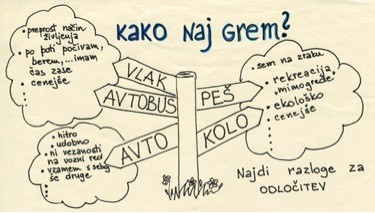 KAKO NAJ GREM?
• preprost način
življenja
• po poti počivam,
berem,...imam
čas zase
• cenejše
VLAK
AVTOBUS
PEŠ
AVTO
KOLO
• sem na zraku
• rekreacija
"mimogrede"
• ekološko
• cenejše
• hitro
• udobno
• ni vezanosti
na vozni red
• vzamem s seboj
še druge
Najdi razloge za
ODLOČITEV